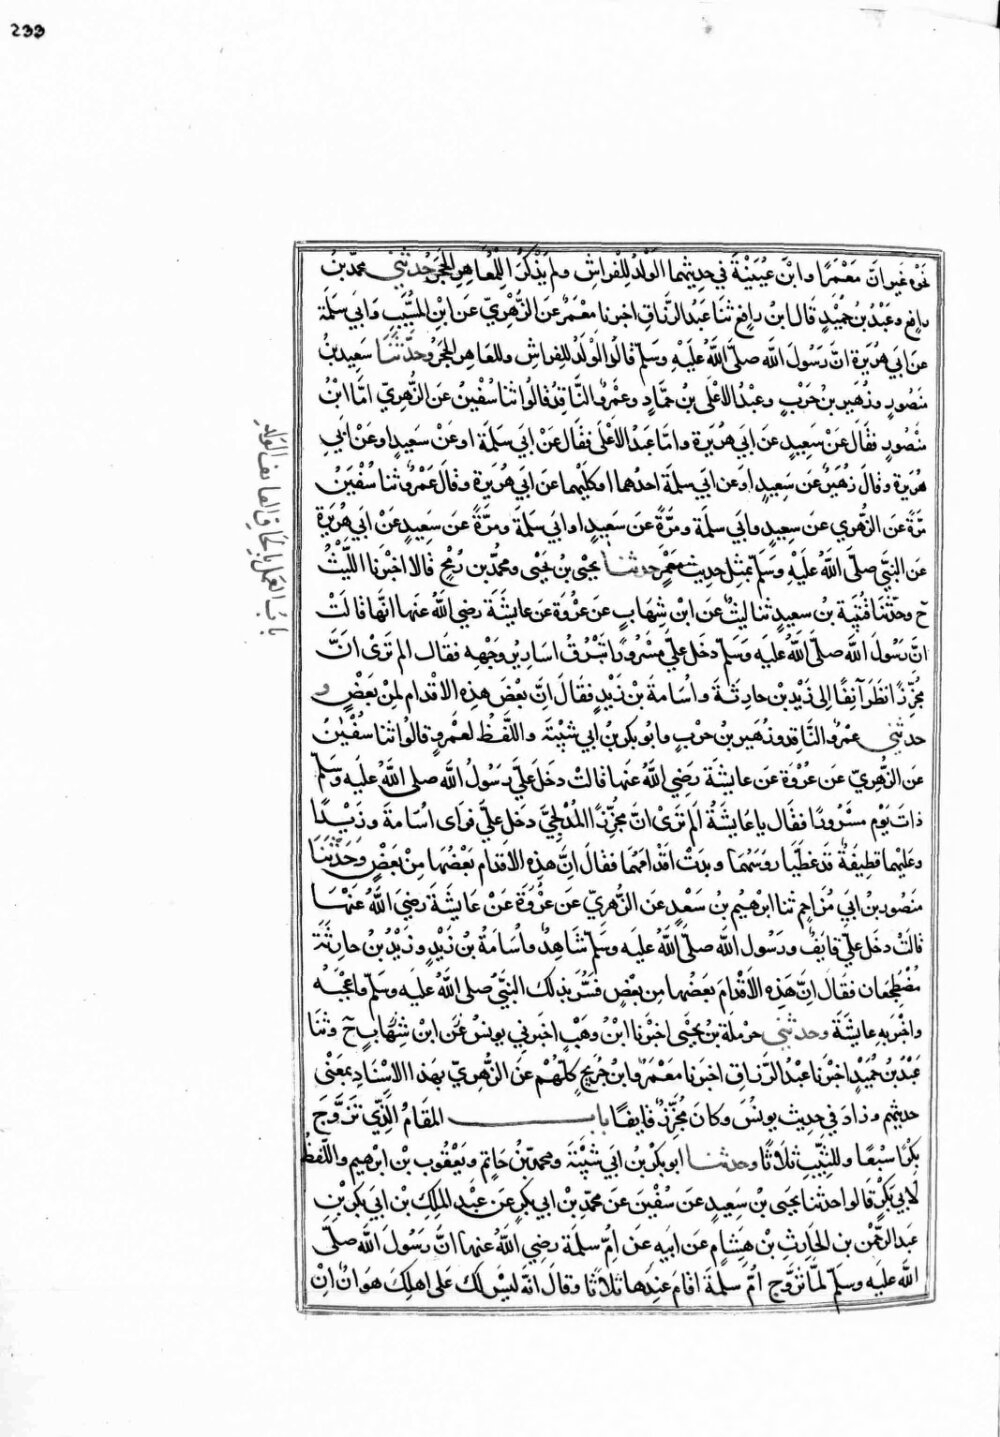 233
نحوه غير ان معمرا وابن عيينة في حديثهما الولد للفراش ولم يذكر اللعاهر الحجر حدثني محمد بن
رافع وعبد بن حميد قال ابن رافع ثنا عبد الرزاق اخبرنا معمر عن الزهري عن ابن المسيب وابي سلمة
عن ابي هريرة ان رسول الله صلى الله عليه وسلم قالوا الولد للفراش وللعاهر الحجر وحدثنا سعيد بن
منصور وزهير بن حرب وعبد الاعلى بن حماد وعمرو الناقد قالوا ثنا سفين عن الزهري اما ابن
منصور فقال عن سعيد عن ابي هريرة واما عبد الاعلى فقال عن ابي سلمة او عن سعيد او عن ابي
هريرة وقال زهير عن سعيد او عن ابي سلمة احدهما او كليهما عن ابي هريرة وقال عمرو ثنا سفين
مرة عن الزهري عن سعيد وابي سلمة ومرة عن سعيد او ابي سلمة ومرة عن سعيد عن ابي هريرة
عن النبي صلى الله عليه وسلم بمثل حديث معمر حدثنا يحيى بن يحيى ومحمد بن رمح قالا اخبرنا الليث
ح وحدثنا قتيبة بن سعيد ثنا ليث عن ابن شهاب عن عروة عن عايشة رضي الله عنها انها قالت
ان رسول الله صلى الله عليه وسلم دخل علي مسرورا تبرق اسارير وجهه فقال الم تري ان
مجززا نظر آنفا الى زيد بن حارثة واسامة بن زيد فقال ان بعض هذه الاقدام لمن بعض و
حدثني عمرو الناقد وزهير بن حرب وابو بكر بن ابي شيبة واللفظ لعمرو قالوا ثنا سفين
عن الزهري عن عروة عن عايشة رضي الله عنها قالت دخل علي رسول الله صلى الله عليه وسلم
ذات يوم مسرورا فقال يا عايشة الم تري ان مجززا المدلجي دخل علي فراى اسامة وزيدا
وعليهما قطيفة قد غطيا روسهما وبدت اقدامهما فقال ان هذه الاقدام بعضها من بعض وحدثنا
منصور بن ابي مزاحم ثنا ابرهيم بن سعد عن الزهري عن عروة عن عايشة رضي الله عنها
قالت دخل علي قايف ورسول الله صلى الله عليه وسلم شاهد واسامة بن زيد وزيد بن حارثة
مضطجعان فقال ان هذه الاقدام بعضها من بعض فسر بذلك النبي صلى الله عليه وسلم واعجبه
واخبر به عايشة وحدثني حرملة بن يحيى اخبرنا ابن وهب اخبرني يونس عن ابن شهاب ح وثنا
عبد بن حميد اخبرنا عبد الرزاق اخبرنا معمر وابن جريج كلهم عن الزهري بهذا الاسناد بمعنى
حديثهم وزاد في حديث يونس وكان مجزز قايفا باب المقام الذي تزوج
بكرا سبعا وللثيب ثلاثا وحدثنا ابو بكر بن ابي شيبة ومحمد بن حاتم ويعقوب بن ابرهيم واللفظ
لابي بكر قالوا حدثنا يحيى بن سعيد عن سفين عن محمد بن ابي بكر عن عبد الملك بن ابي بكر بن
عبد الرحمن بن الحارث بن هشام عن ابيه عن ام سلمة رضي الله عنها ان رسول الله صلى
الله عليه وسلم لما تزوج ام سلمة اقام عندها ثلاثا وقال انه ليس لك على اهلك هوان ان
باب العمل بالحاق القايف الولد